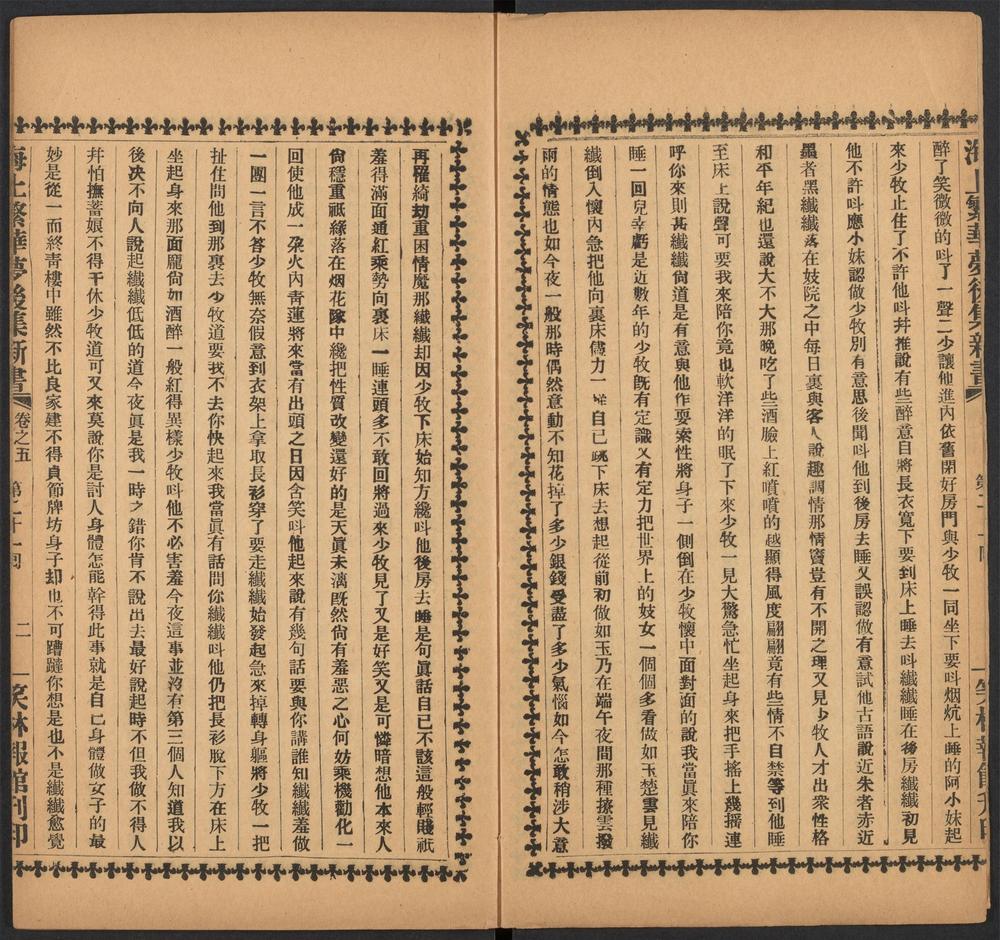 海上繁華夢後集新書
笑林報館刊印
醉了笑微微的呌了一聲二少讓他進內依舊閉好房門與少牧一同坐下要呌烟炕上睡的阿小妹起
來少牧止住了不許他呌幷推說有些醉意自將長衣寬下要到床上睡去呌纖纖睡在後房纖纖初見
他不許呌應小妹認做少牧別有意思後聞呌他到後房去睡又誤認做有意試他古語說近朱者赤近
墨者黑纖纖落在妓院之中每日裏與客人說趣調情那情竇豈有不開之理又見少牧人才出衆性格
和平年紀也還說大不大那晚吃了些酒臉上紅噴噴的越顯得風度翩翩竟有些情不自禁等到他睡
至床上說聲可要我來陪你竟也軟洋洋的眠了下來少牧一見大驚急忙坐起身來把手搖上幾搖連
呼你來則甚纖纖尙道是有意與他作耍索性將身子一側倒在少牧懷中面對面的說我當眞來陪你
睡一回兒幸虧是近數年的少牧旣有定識又有定力把世界上的妓女一個個多看做如玉楚雲見纖
纖倒入懷內急把他向裏床儘力一推自已跳下床去想起從前初做如玉乃在端午夜間那種撩雲撥
雨的情態也如今夜一般那時偶然意動不知花掉了多少銀錢受盡了多少氣惱如今怎敢稍涉大意
再罹綺劫重困情魔那纖纖却因少牧下床始知方纔呌他後房去睡是句眞話自已不該這般輕賤祇
羞得滿面通紅乘勢向裏床一睡連頭多不敢回將過來少牧見了又是好笑又是可憐暗想他本來人
尙穩重祇緣落在烟花隊中纔把性質改變還好的是天眞未漓旣然尙有羞惡之心何妨乘機勸化一
回使他成一朶火內青蓮將來當有出頭之日因含笑呌他起來說有幾句話要與你講誰知纖纖羞做
一團一言不答少牧無奈假意到衣架上拿取長衫穿了要走纖纖始發起急來掉轉身軀將少牧一把
扯住問他到那裏去少牧道要我不去你快起來我當眞有話問你纖纖呌他仍把長衫脫下方在床上
坐起身來那面龐尙如酒醉一般紅得異樣少牧呌他不必害羞今夜這事並沒有第三個人知道我以
後决不向人說起纖纖低低的道今夜眞是我一時之錯你肯不說出去最好說起時不但我做不得人
幷怕撫蓄娘不得干休少牧道可又來莫說你是討人身體怎能幹得此事就是自已身體做女子的最
妙是從一而終靑樓中雖然不比良家建不得貞節牌坊身子却也不可蹧蹋你想是也不是纖纖愈覺
海上繁華夢後集新書
卷之五
第二十一回
二
笑林報館刊印